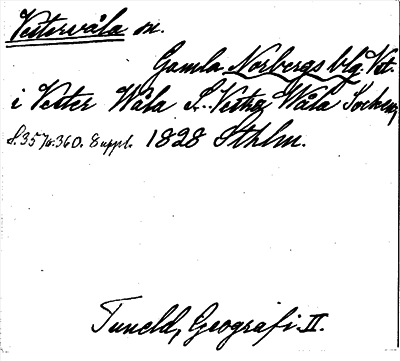 Vestervåla sn.
Gamla Norbergs blg. Vst.
i Vester Wåla L. Vestra Wåla Socken,
S. 357o.360. Suppl. 1828 Sthlm.
Tuneld, Geografi II.